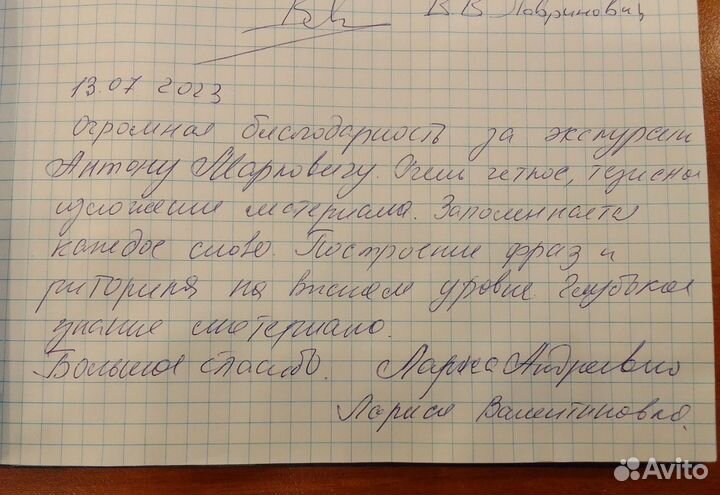 В.В. Лавринович
13.07 2023
Огромная благодарность за экскурсии
Антону Марковичу. Очень четкое, тезисное
изложение материала. Запоминается
каждое слово. Построение фраз и
риторика на высшем уровне Глубокое
знание материала.
Большое спасибо. Лариса Андреевна
Лариса Валентиновна.
Avito